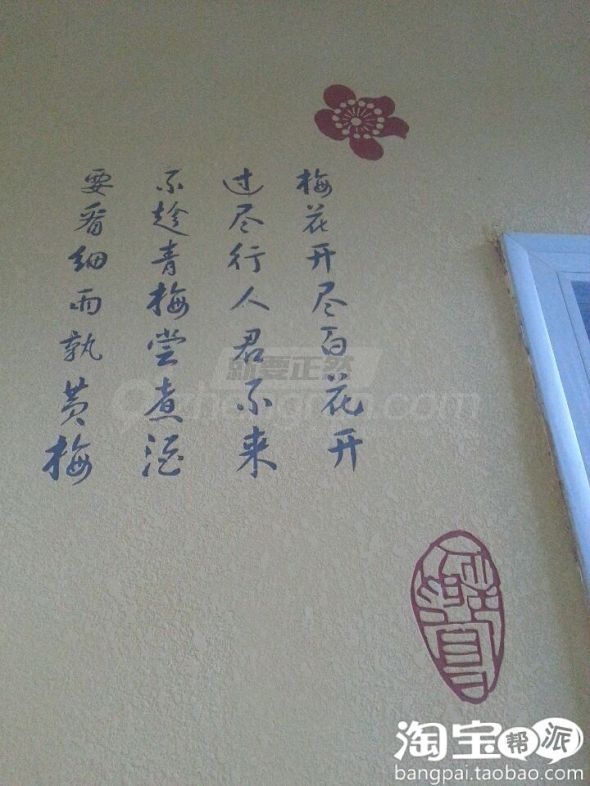 梅花开尽百花开
过尽行人君不来
不趁青梅尝煮酒
要看细雨熟黄梅
新要正然
zhengran.com
淘宝帮派
bangpai.taobao.com